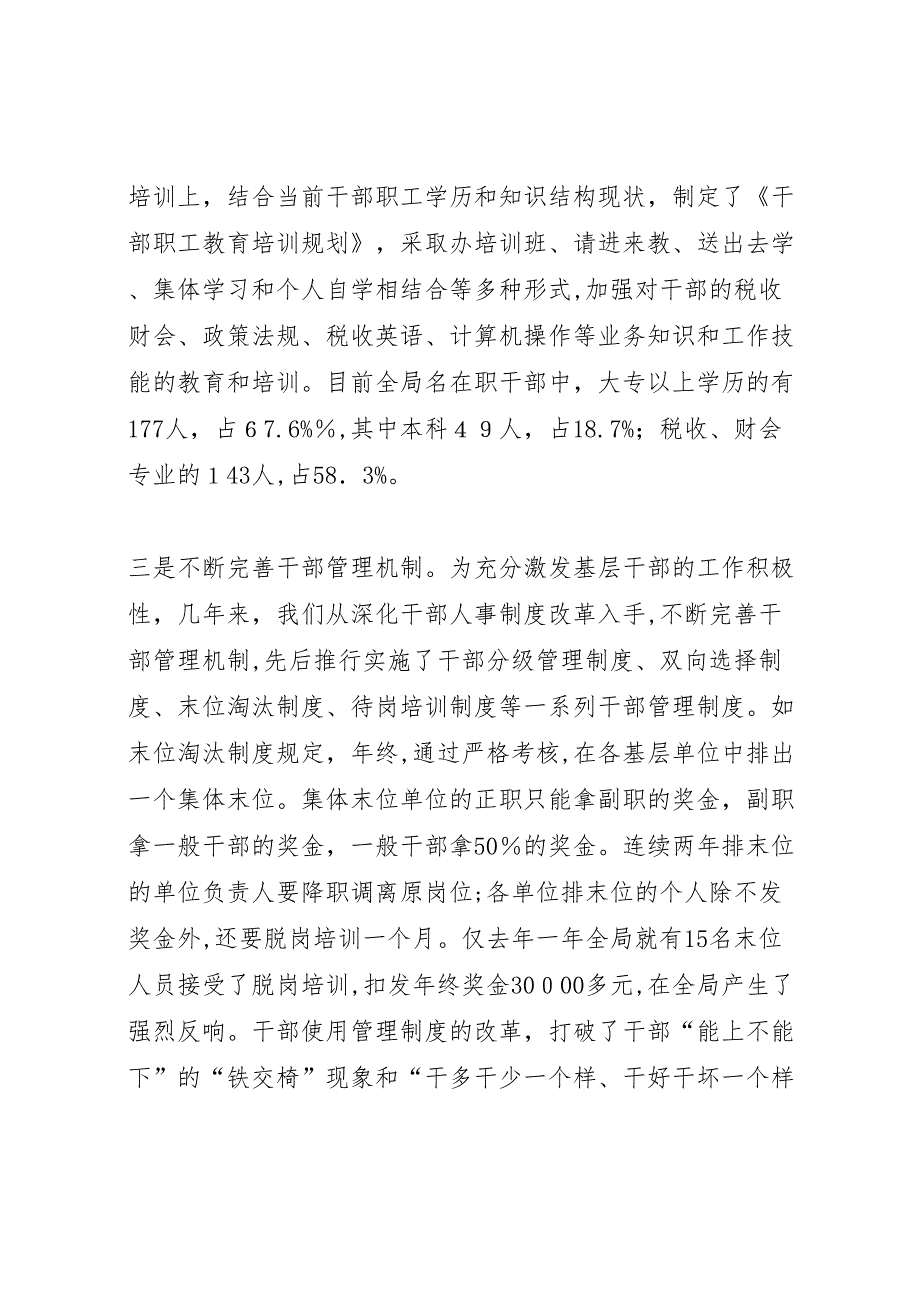 培训上，结合当前干部职工学历和知识结构现状，制定了《干
部职工教育培训规划》，采取办培训班、请进来教、送出去学
、集体学习和个人自学相结合等多种形式,加强对干部的税收
财会、政策法规、税收英语、计算机操作等业务知识和工作技
能的教育和培训。目前全局名在职干部中，大专以上学历的有
177人，占６7.6%％,其中本科４９人，占18.7%；税收、财会
专业的１43人,占58．3%。
三是不断完善干部管理机制。为充分激发基层干部的工作积极
性，几年来，我们从深化干部人事制度改革入手,不断完善干
部管理机制,先后推行实施了干部分级管理制度、双向选择制
度、末位淘汰制度、待岗培训制度等一系列干部管理制度。如
末位淘汰制度规定，年终,通过严格考核,在各基层单位中排出
一个集体末位。集体末位单位的正职只能拿副职的奖金，副职
拿一般干部的奖金，一般干部拿50％的奖金。连续两年排末位
的单位负责人要降职调离原岗位;各单位排末位的个人除不发
奖金外,还要脱岗培训一个月。仅去年一年全局就有15名末位
人员接受了脱岗培训,扣发年终奖金30０00多元,在全局产生了
强烈反响。干部使用管理制度的改革，打破了干部“能上不能
下”的“铁交椅”现象和“干多干少一个样、干好干坏一个样